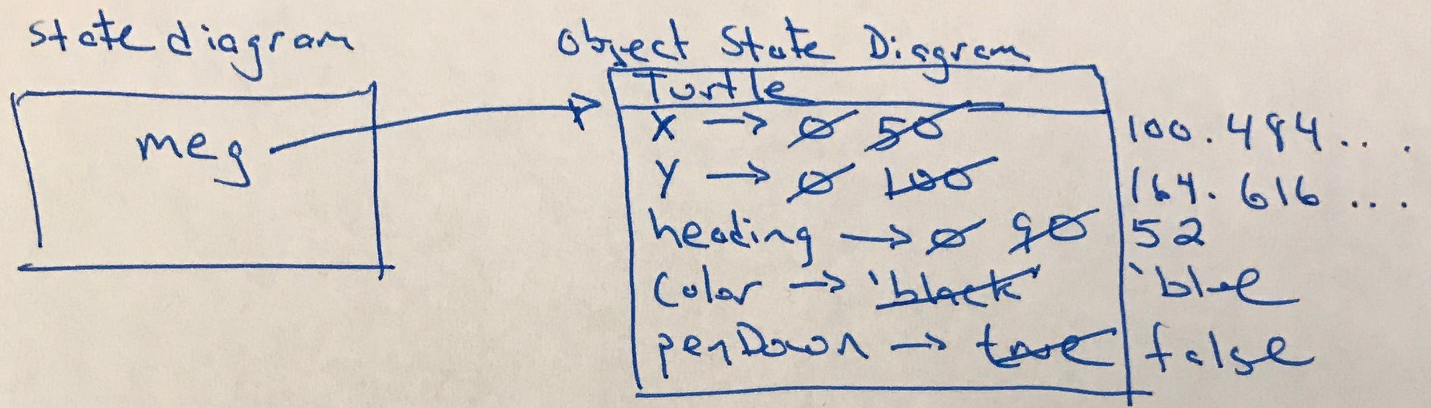 state diagram
Object State Diagram
meg
Turtle
X → 0 50 100.484...
Y → 0 100 164.616...
heading → 0 90 52
Color → 'black' 'blue
penDown → true false